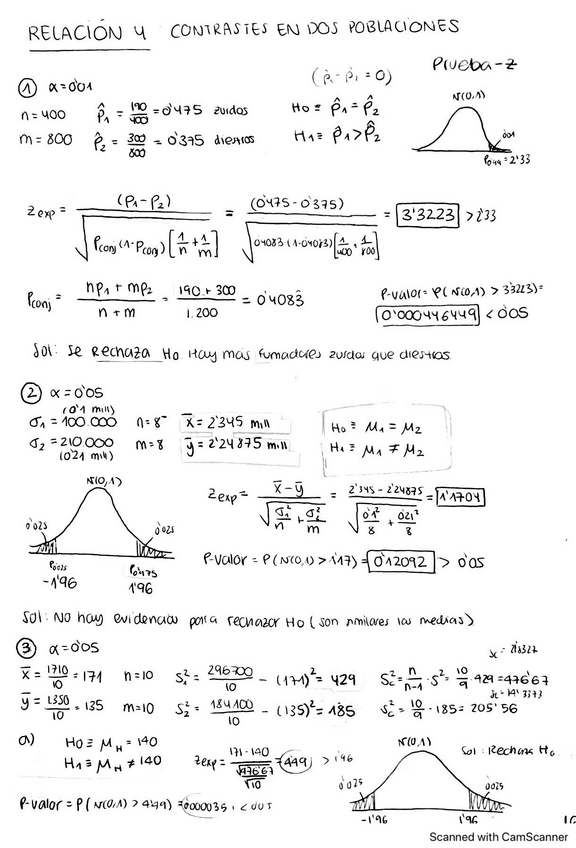 RELACIÓN 4 CONTRASTES EN DOS POBLACIONES
Prueba-Z
① α=0'01
(p̂₁-p̂₂=0)
n=400 p̂₁ = 190/400 = 0'475 zurdos H₀ ≡ p̂₁ = p̂₂
m=800 p̂₂ = 300/800 = 0'375 diestros H₁ ≡ p̂₁ > p̂₂
N(0,1)
0'01
P₀'₄₉ = 2'33
Z exp = (P₁-P₂) / √(Pconj (1-Pconj) [1/n + 1/m]) = (0'475-0'375) / √(0'4083 (1-0'4083) [1/400 + 1/800]) = 3'3223 > 2'33
Pconj = (nP₁ + mP₂)/(n+m) = (190 + 300)/1.200 = 0'4083
P-valor = P(N(0,1) > 3'3223) =
0'000446449 < 0'05
Sol: Se Rechaza H₀. Hay más fumadores zurdos que diestros.
② α=0'05
(0'1 mill)
σ₁ = 100.000 n=8 x̄ = 2'345 mill H₀ ≡ μ₁ = μ₂
σ₂ = 210.000 m=8 ȳ = 2'24875 mill H₁ ≡ μ₁ ≠ μ₂
(0'21 mill)
N(0,1)
0'025 0'025
P₀'₀₂₅ P₀'₄₇₅
-1'96 1'96
Z exp = (x̄-ȳ) / √(σ₁²/n + σ₂²/m) = (2'345-2'24875) / √(0'1²/8 + 0'21²/8) = 1'1704
P-valor = P(N(0,1) > 1'17) = 0'12092 > 0'05
Sol: No hay evidencias para rechazar H₀ (son similares las medias)
③ α=0'05
x̄ = 1710/10 = 171 n=10 S₁² = 296700/10 - (171)² = 429 Sc² = n/(n-1) · S² = 10/9 · 429 = 476'67
ȳ = 1350/10 = 135 m=10 S₂² = 184100/10 - (135)² = 185 Sc² = 10/9 · 185 = 205'56
a) H₀ ≡ μ_H = 140
H₁ ≡ μ_H ≠ 140
Z exp = (171-140) / (√476'67/√10) = 4'49 > 1'96
P-valor = P(N(0,1) > 4'49) = 0'0000035 < 0'05
N(0,1)
Sol: Rechaza H₀
0'025 0'025
-1'96 1'96
Scanned with CamScanner